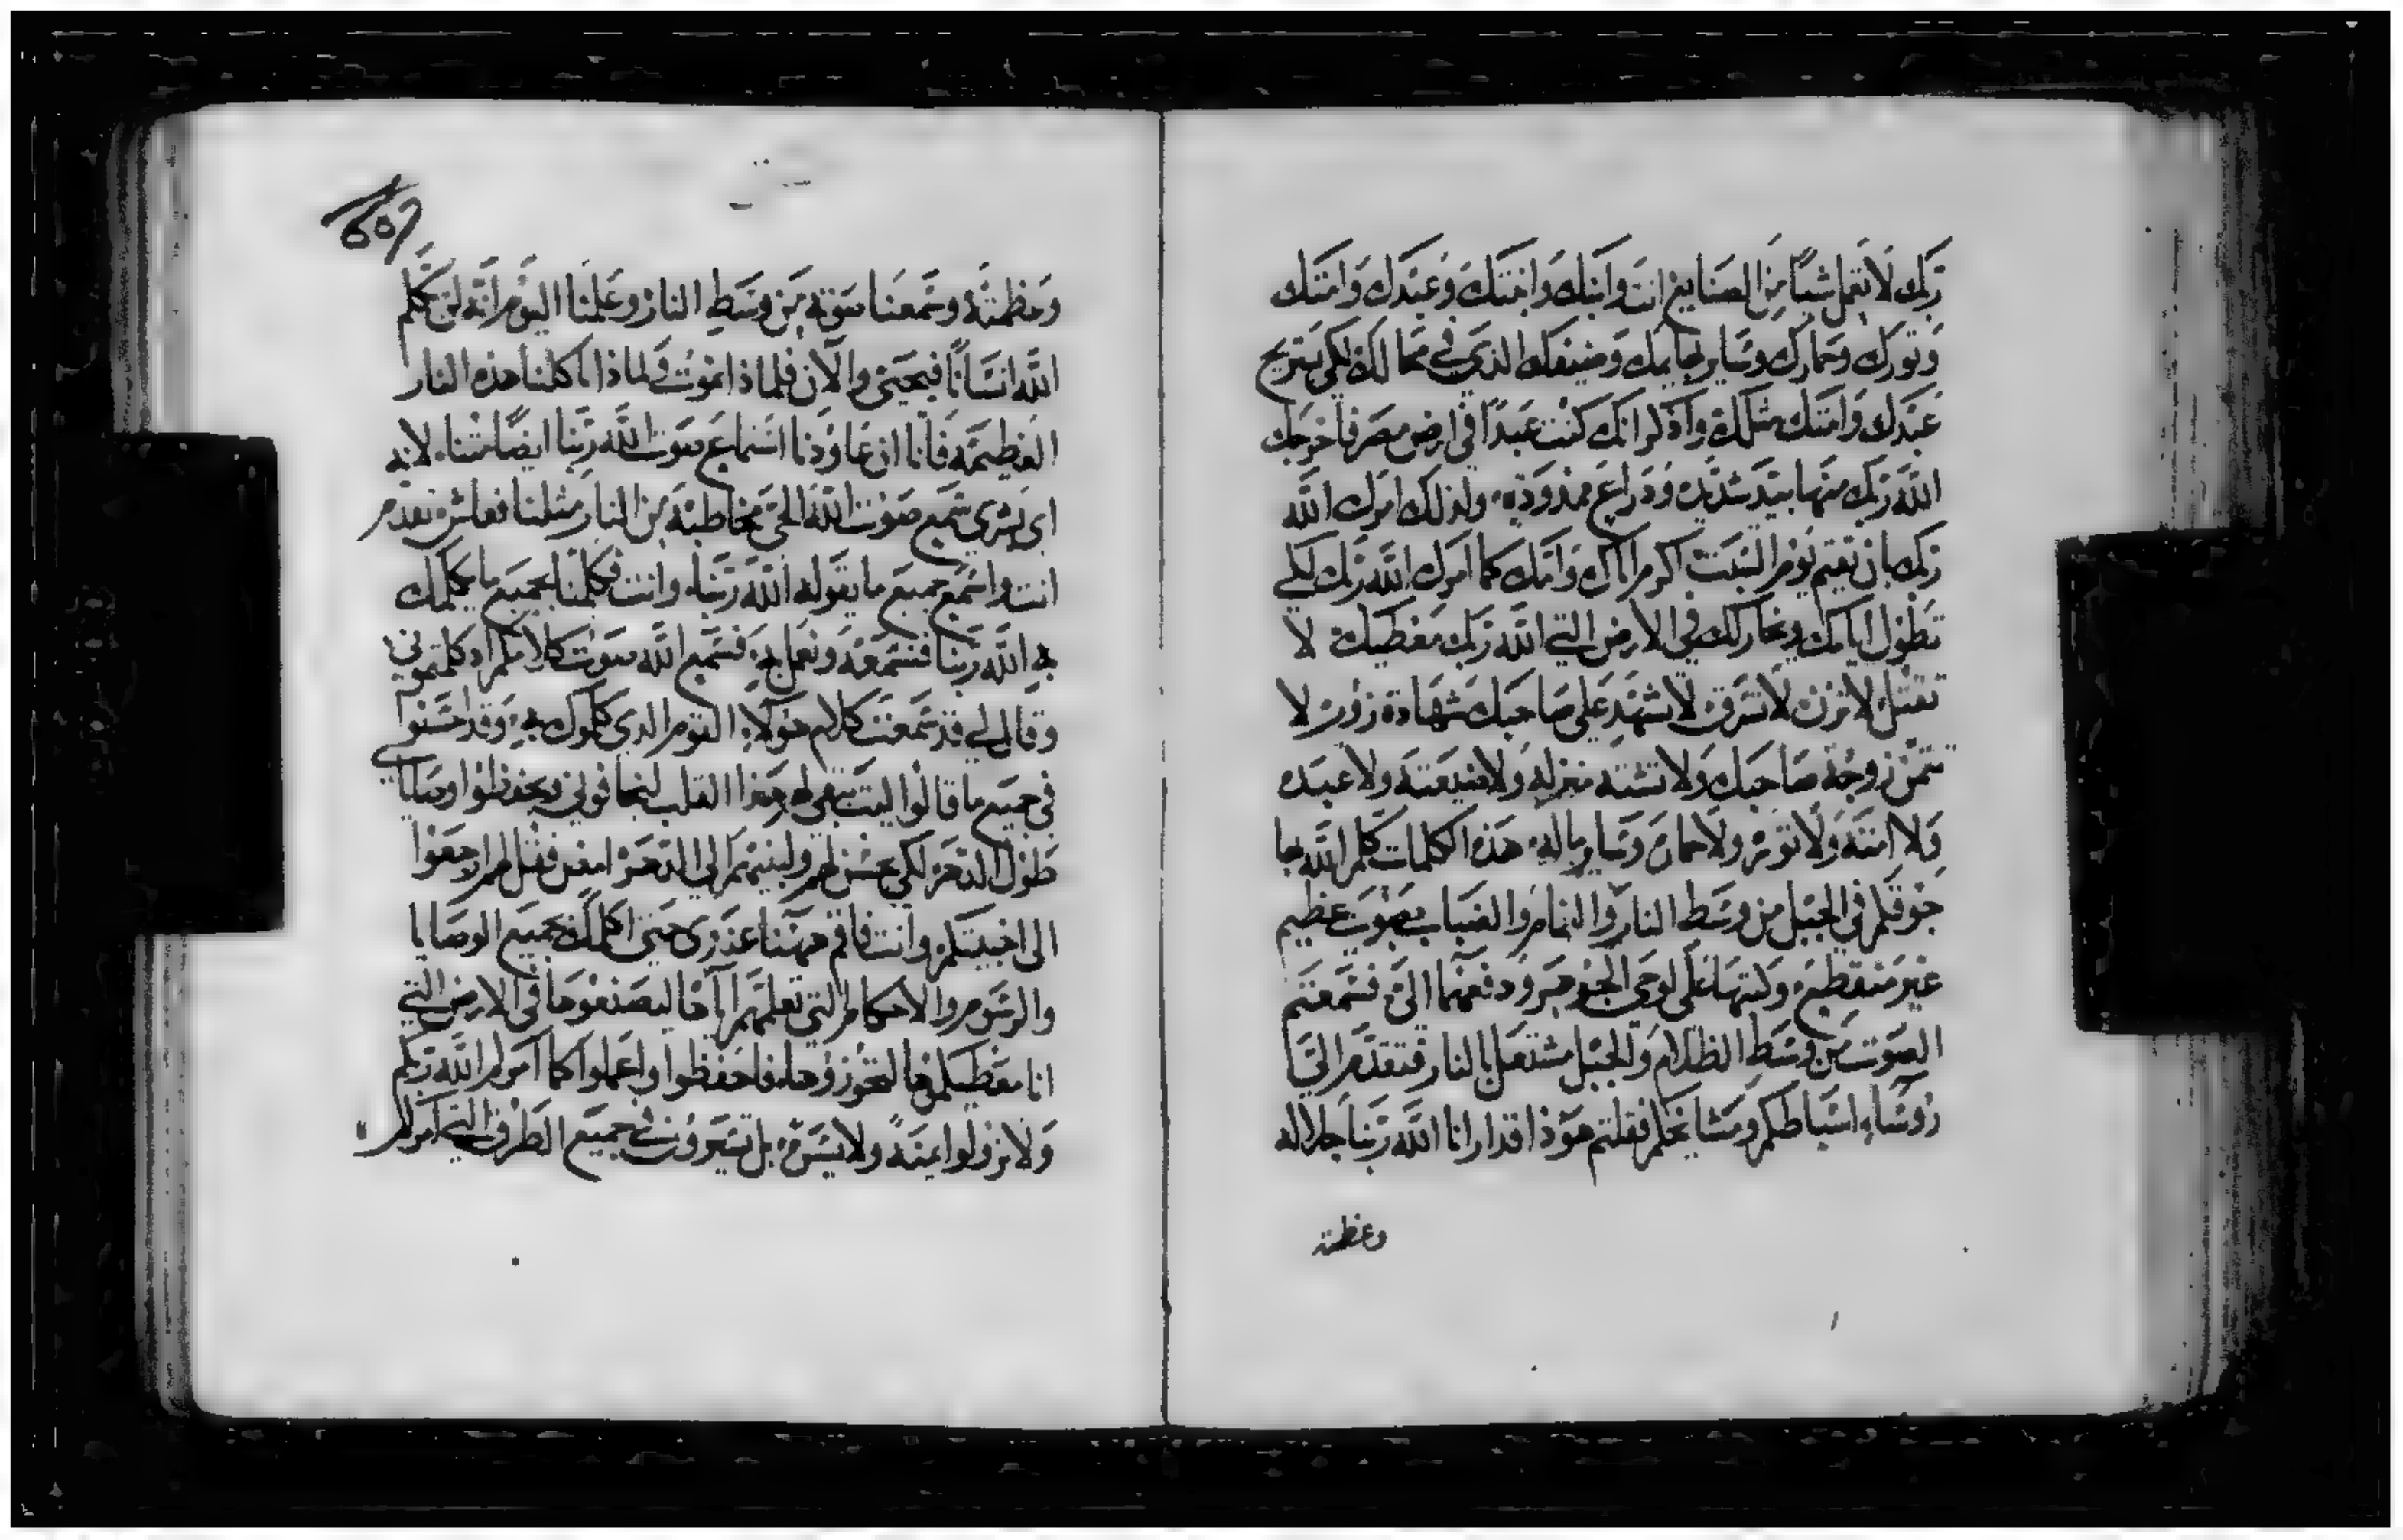 ربك لا تعمل شيئًا من الصنايع انت وابنك وابنتك وعبدك وامتك
وتورك وحمارك وساير بهايمك وضيفك الذى في محالك لكى يستريح
عبدك وامتك مثلك واذكر انك كنت عبدًا فى ارض مصر فاخرجك
الله ربك منها بيد شديده ودراع ممدودة ولذلك امرك الله
ربك بان تقيم يوم السبت اكرم اباك وامك كما امرك الله ربك لكي
تطول ايامك ويخار لك في الارض التي الله ربك معطيك لا
تقتل لا تزن لا تسرق لا تشهد على صاحبك شهادة زور لا
تتمن زوجة صاحبك ولا تشته منزله ولا ضيعته ولا عبده
ولا امته ولا توره ولا حماره وساير ماله هذه الكلمات كلم الله بها
جوقكم في الجبل من وسط النار والغمام والضباب بصوت عظيم
غير منقطع وكتبها على لوحي الجوهر ودفعهما الىّ فسمعتم
الصوت من وسط الظلام والجبل مشتعل بالنار فتقدم اليّ
روساء اسباطكم ومشايخكم فقلتم هوذا قد ارانا الله ربنا جلاله
وعظمته
وعظمته وسمعنا صوته من وسط النار وعلمنا اليوم انه لن يكلم
الله انسانًا فيحيى والآن فلماذا نموت ولماذا تاكلنا هذه النار
العظيمه فاننا ان عاودنا استماع صوت الله ربنا ايضًا متنا لانه
اى بشرى سمع صوت الله الحي مخاطبه من النار مثلنا فعاش تقدم
انت واسمع جميع ما يقوله الله ربنا وانت فكلمنا بجميع ما يكلمك
به الله ربنا فنسمعه ونعمل به فسمع الله صوت كلامكم اذ كلمتموني
وقال لي قد سمعت كلام هولاء القوم الدى كلموك به وقد احسنوا
في جميع ما قالوا ليت يبقى لهم هذا القلب ليخافوني ويحفظوا وصاياى
طول الدهر لكى يحسن لهم ولبنيهم الى الدهر امض فقل لهم ارجعوا
الى اخبيتكم وانت فاقم ههنا عندى حتى اكلمك بجميع الوصايا
والرسوم والاحكام التي تعلمهم اياها ليصنعوها فى الارض التي
انا معطيكموها لتحوزوها فاحفظوا واعملوا كما امركم الله ربكم
ولا تزولوا يمنةً ولا يسرة بل تسيرون في جميع الطرق التي امركم